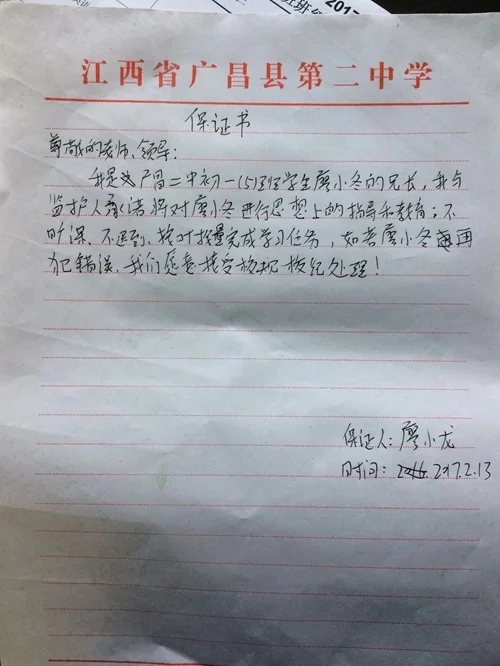 2017
江西省广昌县第二中学
保证书
尊敬的老师、领导：
我是广昌二中初一(5)班学生廖小冬的兄长，我与
监护人承诺将对廖小冬进行思想上的指导和教育；不
旷课、不迟到、按时按量完成学习任务，如若廖小冬再
犯错误，我们愿意接受校规校纪处理！
保证人：廖小龙
时间：2017.2.13